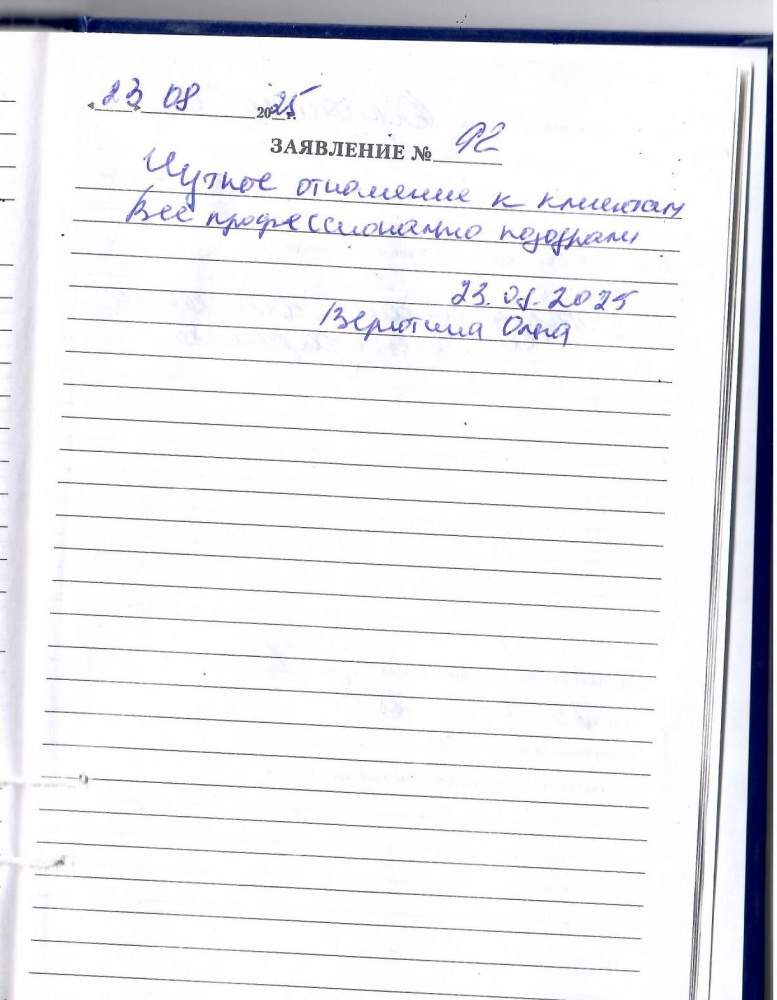 « 23 » 08 2025 г.
ЗАЯВЛЕНИЕ № 92
Чуткое отношение к клиентам
Все профессионально подобрали
23.08.2025
Ольга